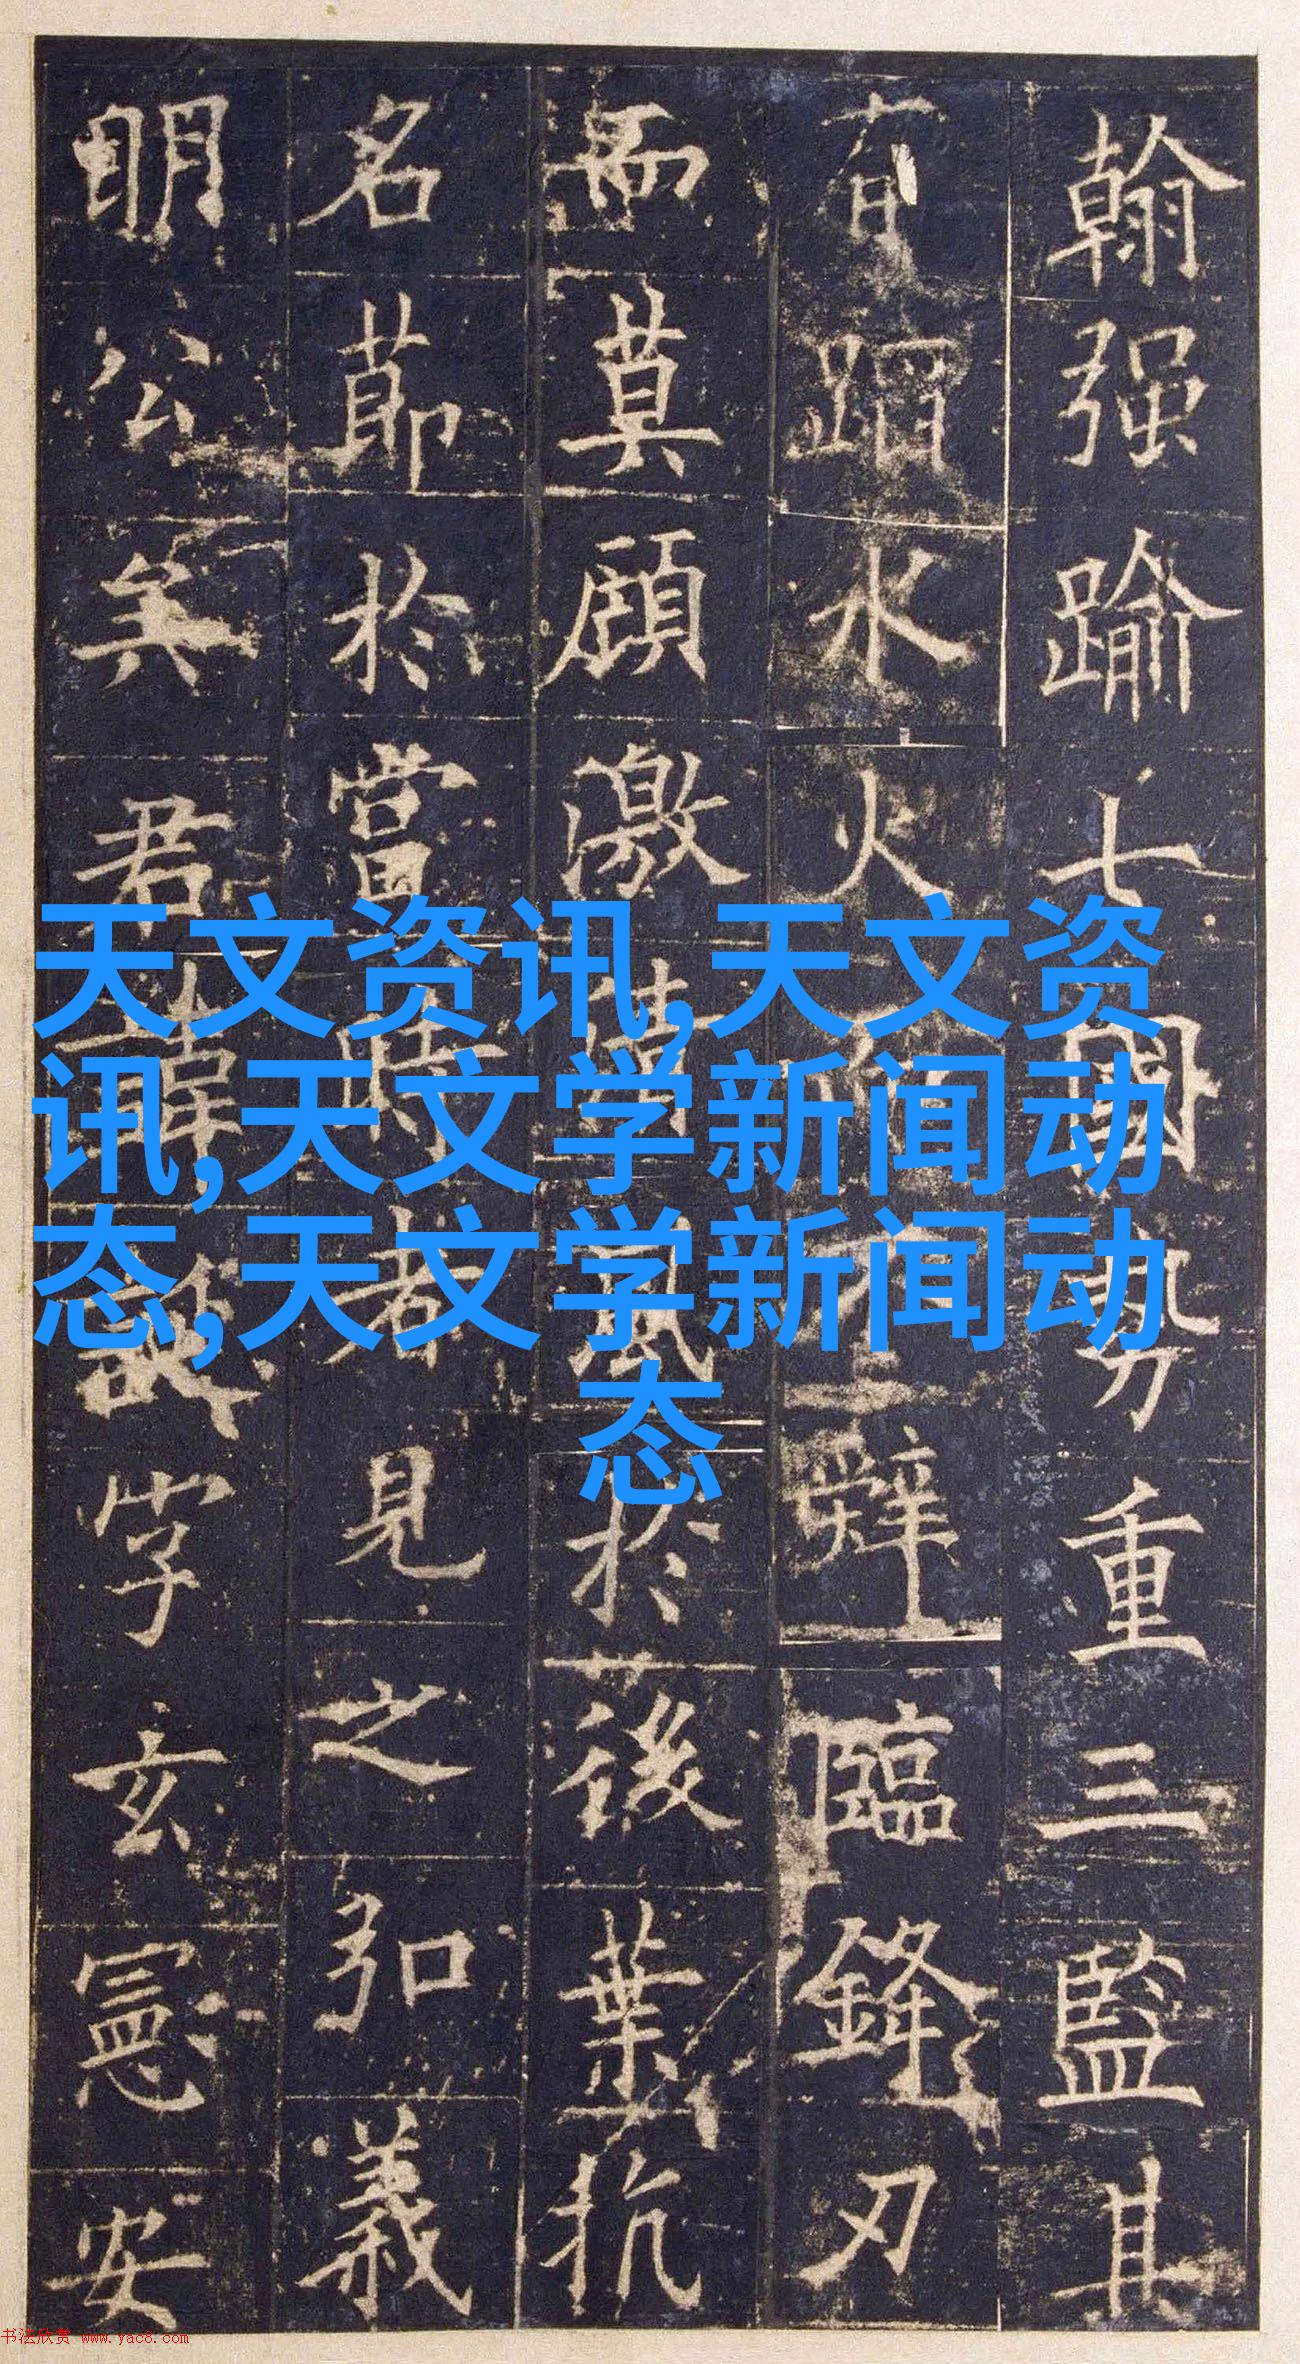 翰强踰七國勢重三監其
有蹈水火而不辭臨鋒刃
而莫顧激清風於後葉抗
名節於當時者見之弘義
明公矣君諱誕字玄憲安
天文资讯,天文资
讯,天文学新闻动
态,天文学新闻动
态
书法欣赏 www.yac8.com